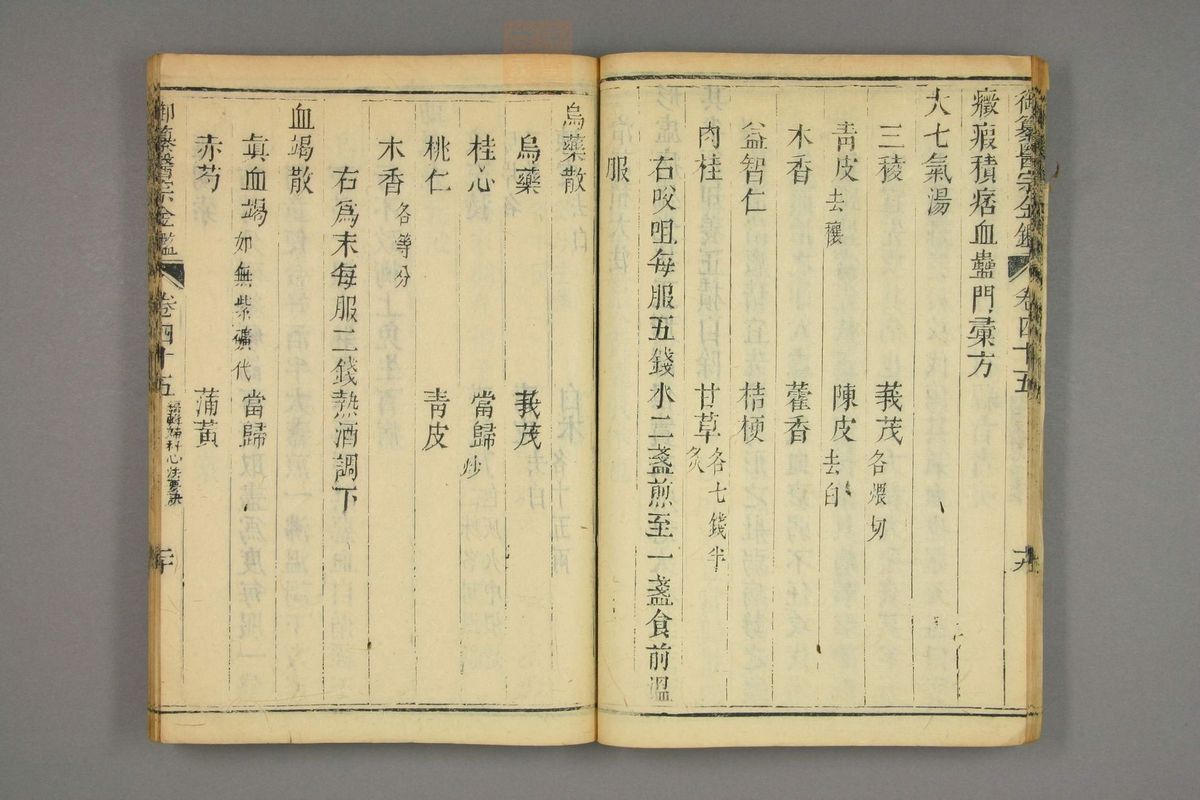 御纂醫宗金鑑 卷四十五 十九
癥瘕積痞血蠱門彙方
大七氣湯
三稜 莪茂各煨切
青皮去穰 陳皮去白
木香 藿香
益智仁 桔梗
肉桂 甘草炙各七錢半
右㕮咀每服五錢水二盞煎至一盞食前溫
服
烏藥散
烏藥 莪茂
桂心 當歸炒
桃仁 青皮
木香各等分
右爲末每服二錢熱酒調下
血竭散
眞血竭如無紫礦代 當歸
赤芍 蒲黃
御纂醫宗金鑑 卷四十五 編輯婦科心法要訣 二十